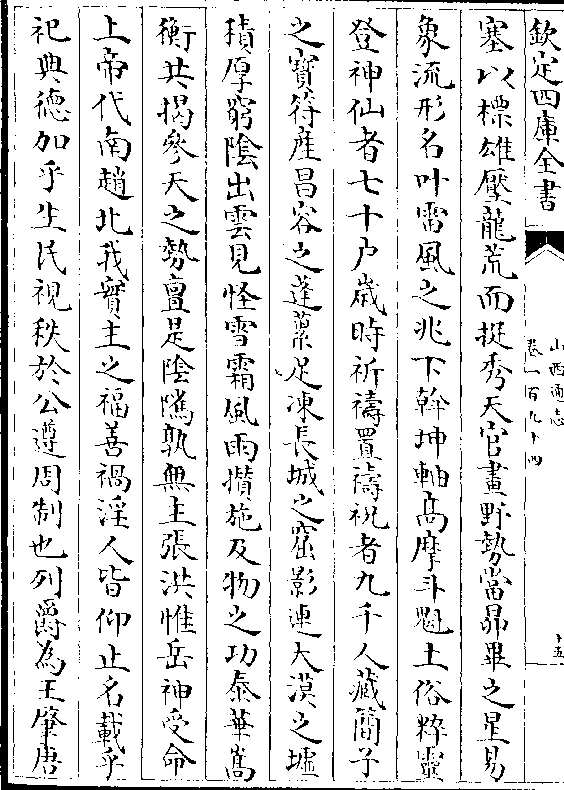 欽定四庫全書
山西通志
卷一百九十四
十五
塞以標雄壓龍荒而挺秀天官畫野勢當昴畢之星易
象流形名叶雷風之兆下斡坤軸髙摩斗魁土俗粹靈
登神仙者七十户嵗時祈禱置禱祝者九千人藏簡子
之寳符産昌容之蓬蔂足凍長城之窟影連大漠之墟
積厚窮陰出雲見怪雪霜風雨攢施及物之功泰華嵩
衡共揭參天之勢亶是陰隲孰無主張洪惟岳神受命
上帝代南趙北我實主之福善禍淫人皆仰止名載乎
祀典德加乎生民視秩於公遵周制也列爵為王肇唐